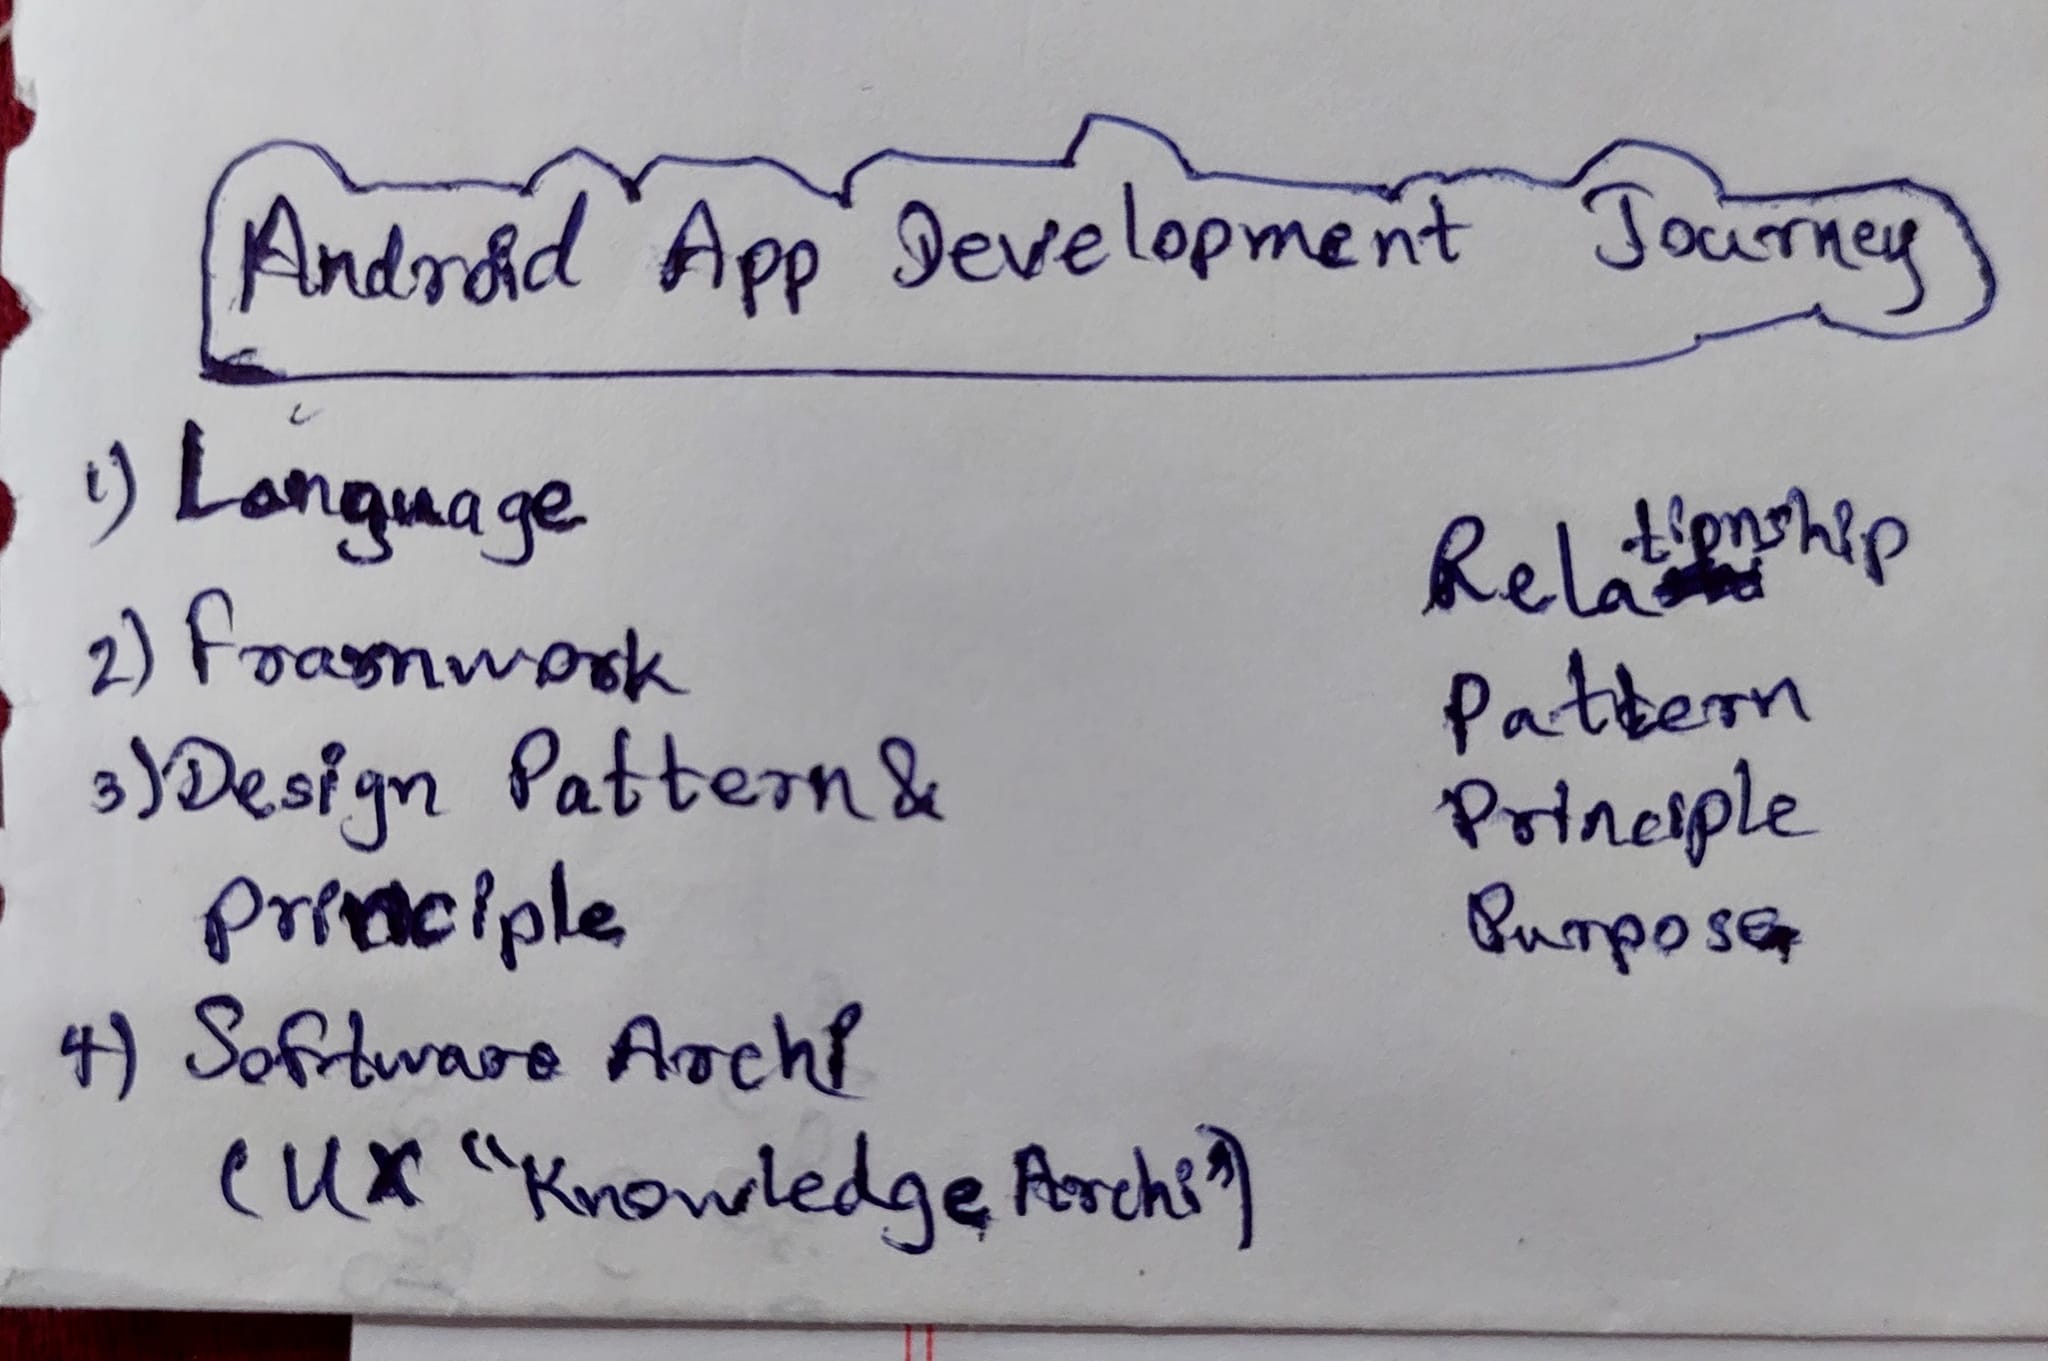 Android App Development Journey
1) Language
2) Framnwork
3) Design Pattern &
Principle
4) Software Archi
(UX "Knowledge Archi")
Relationship
Pattern
Principle
Purpose